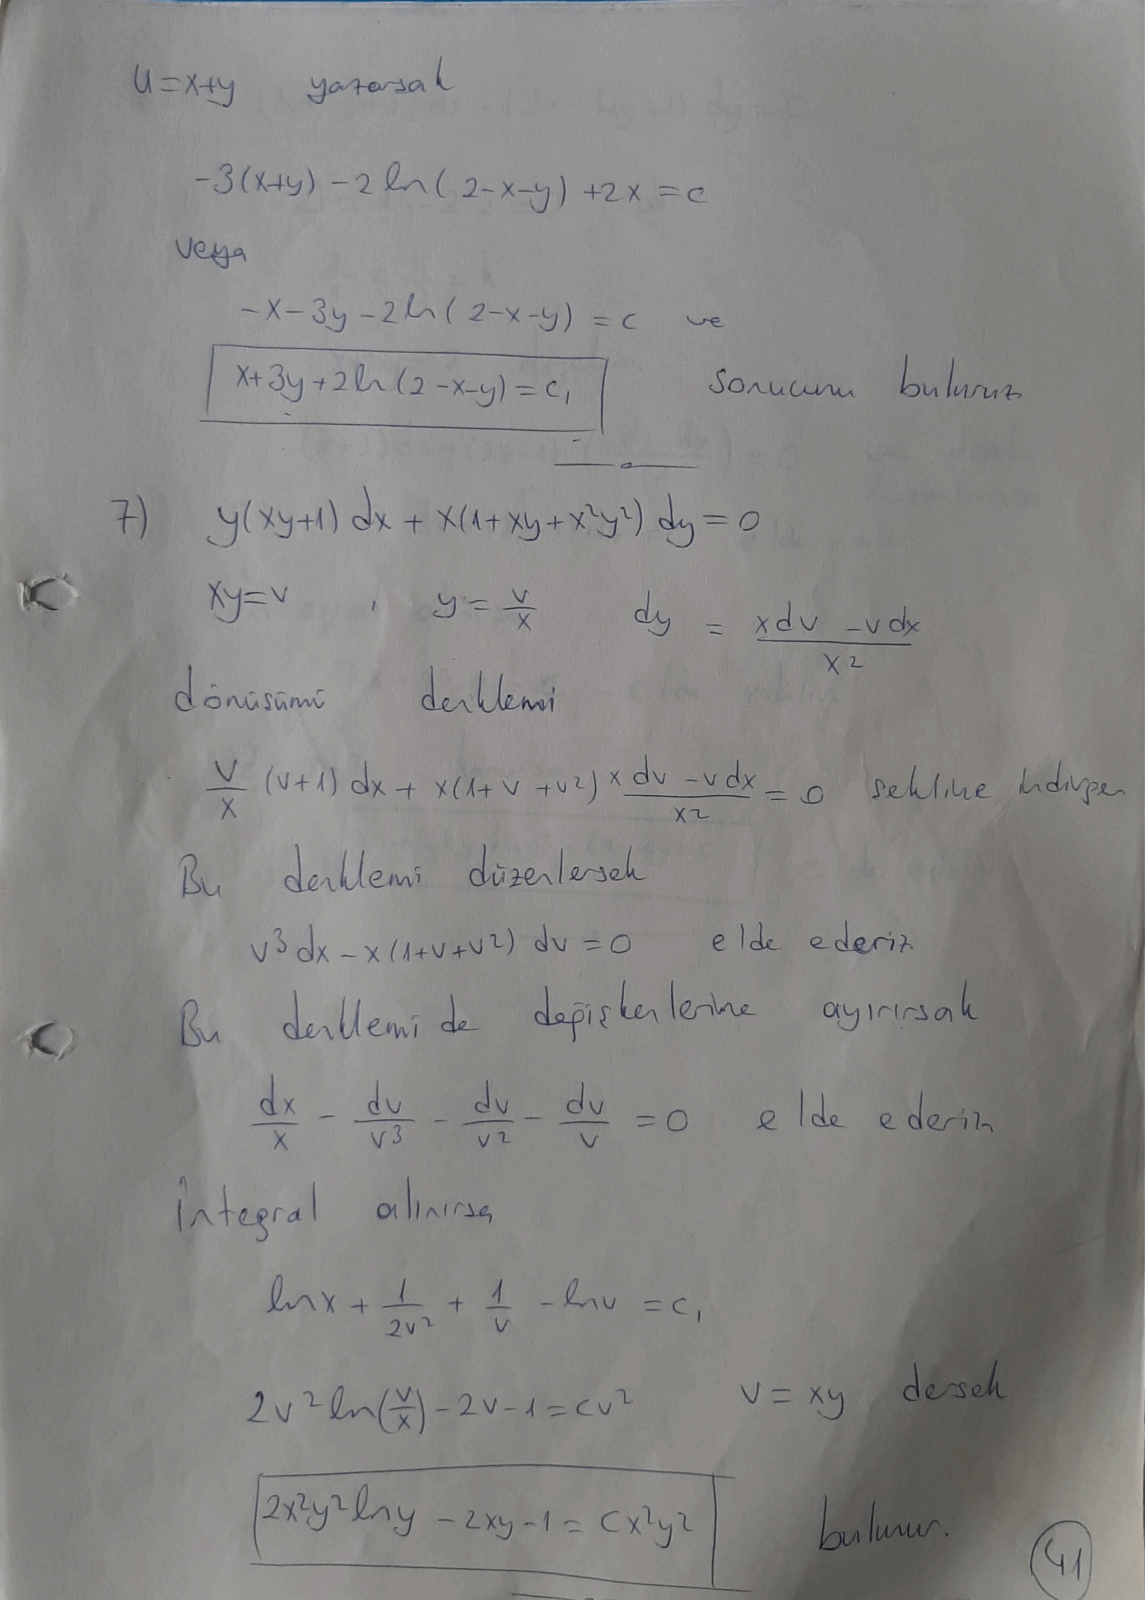 u=x+y yazarsak
-3(x+y) -2 ln(2-x-y) +2x = c
veya
-x-3y-2ln(2-x-y) = c ve
x+3y+2ln(2-x-y)=c₁ sonucunu buluruz
7) y(xy+1) dx + x(1+xy+x²y²) dy=0
xy=v , y = v/x dy = (xdv -vdx)/x²
dönüsümü denklemi
v/x (v+1) dx + x(1+v+v²) (xdv -vdx)/x² = 0 sekline indirger
Bu denklemi düzenlersek
v³dx - x(1+v+v²) dv = 0 elde ederiz
Bu denklemi de değişkenlerine ayırırsak
dx/x - dv/v³ - dv/v² - dv/v = 0 elde ederiz
İntegral alınırsa
lnx + 1/2v² + 1/v - lnv = c₁
2v²ln(v/x) -2v-1=cv² v=xy dersek
2x²y²lny -2xy-1= Cx²y² bulunur.
41